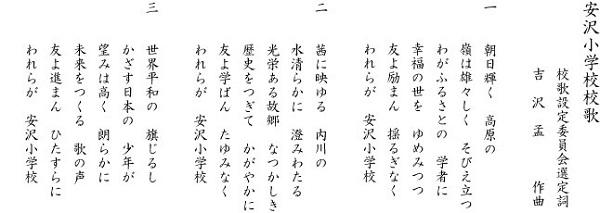 安沢小学校校歌
校歌設定委員会選定詞
吉沢 孟 作曲
一 朝日輝く 高原の
嶺は雄々しく そびえ立つ
わがふるさとの 学者に
幸福の世を ゆめみつつ
友よ励まん 揺るぎなく
われらが 安沢小学校
二 茜に映ゆる 内川の
水清らかに 澄みわたる
光栄ある故郷 なつかしき
歴史をつぎて かがやかに
友よ学ばん たゆみなく
われらが 安沢小学校
三 世界平和の 旗じるし
かざす日本の 少年が
望みは高く 朗らかに
未来をつくる 歌の声
友よ進まん ひたすらに
われらが 安沢小学校